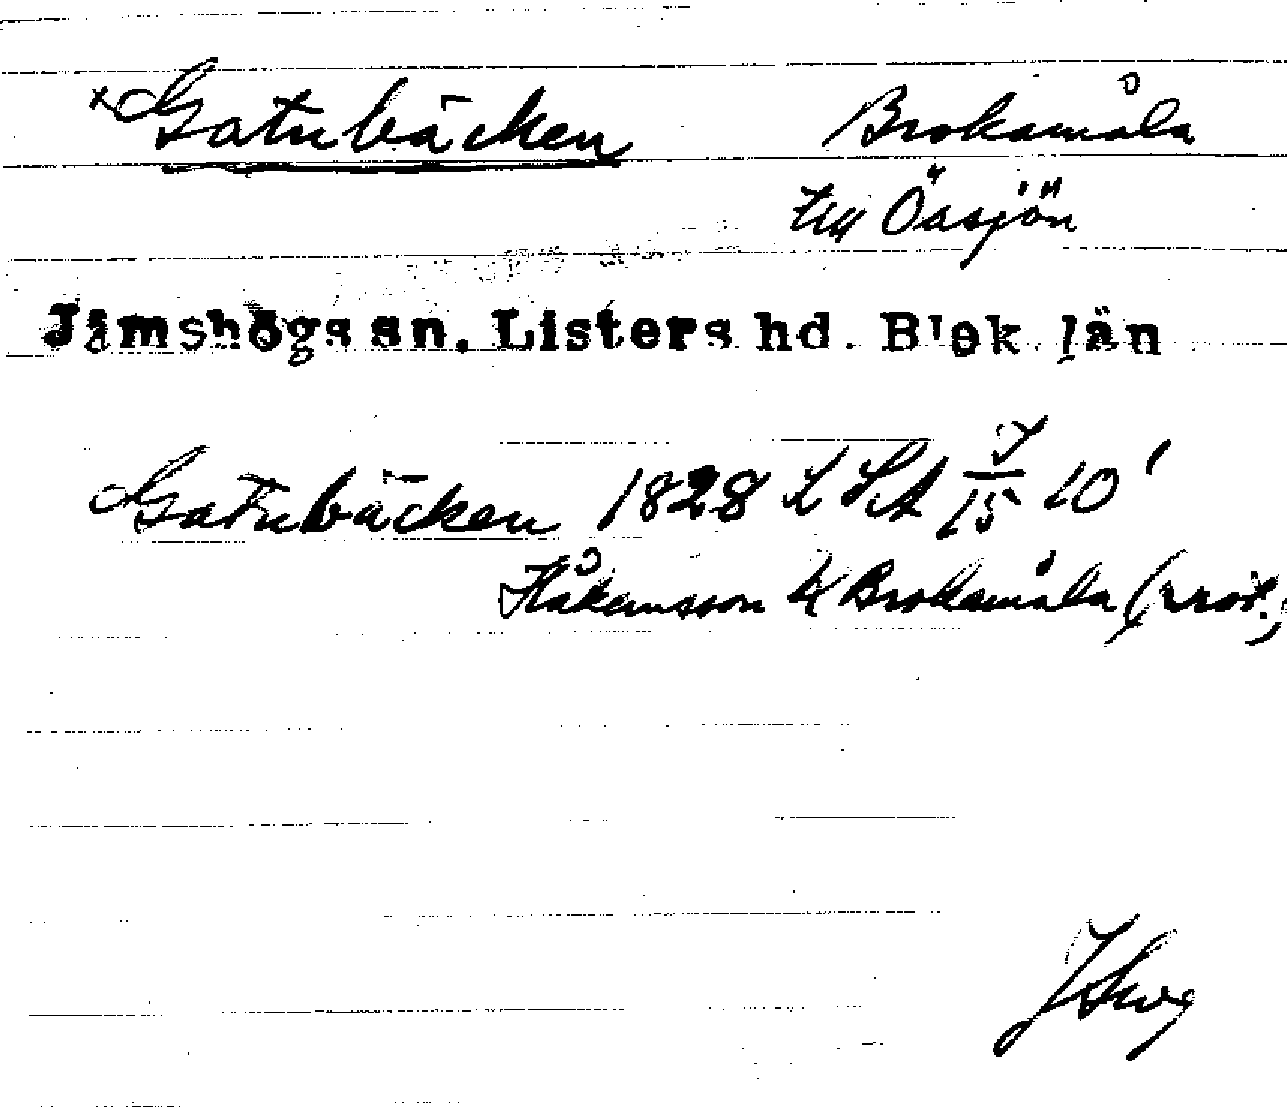 x Gatubäcken Brokamåla
till Öasjön
Jämshögs sn. Listers hd. Blek. län
Gatubäcken 1828 L SA J/15 10'
Håkansson K Brokamåla